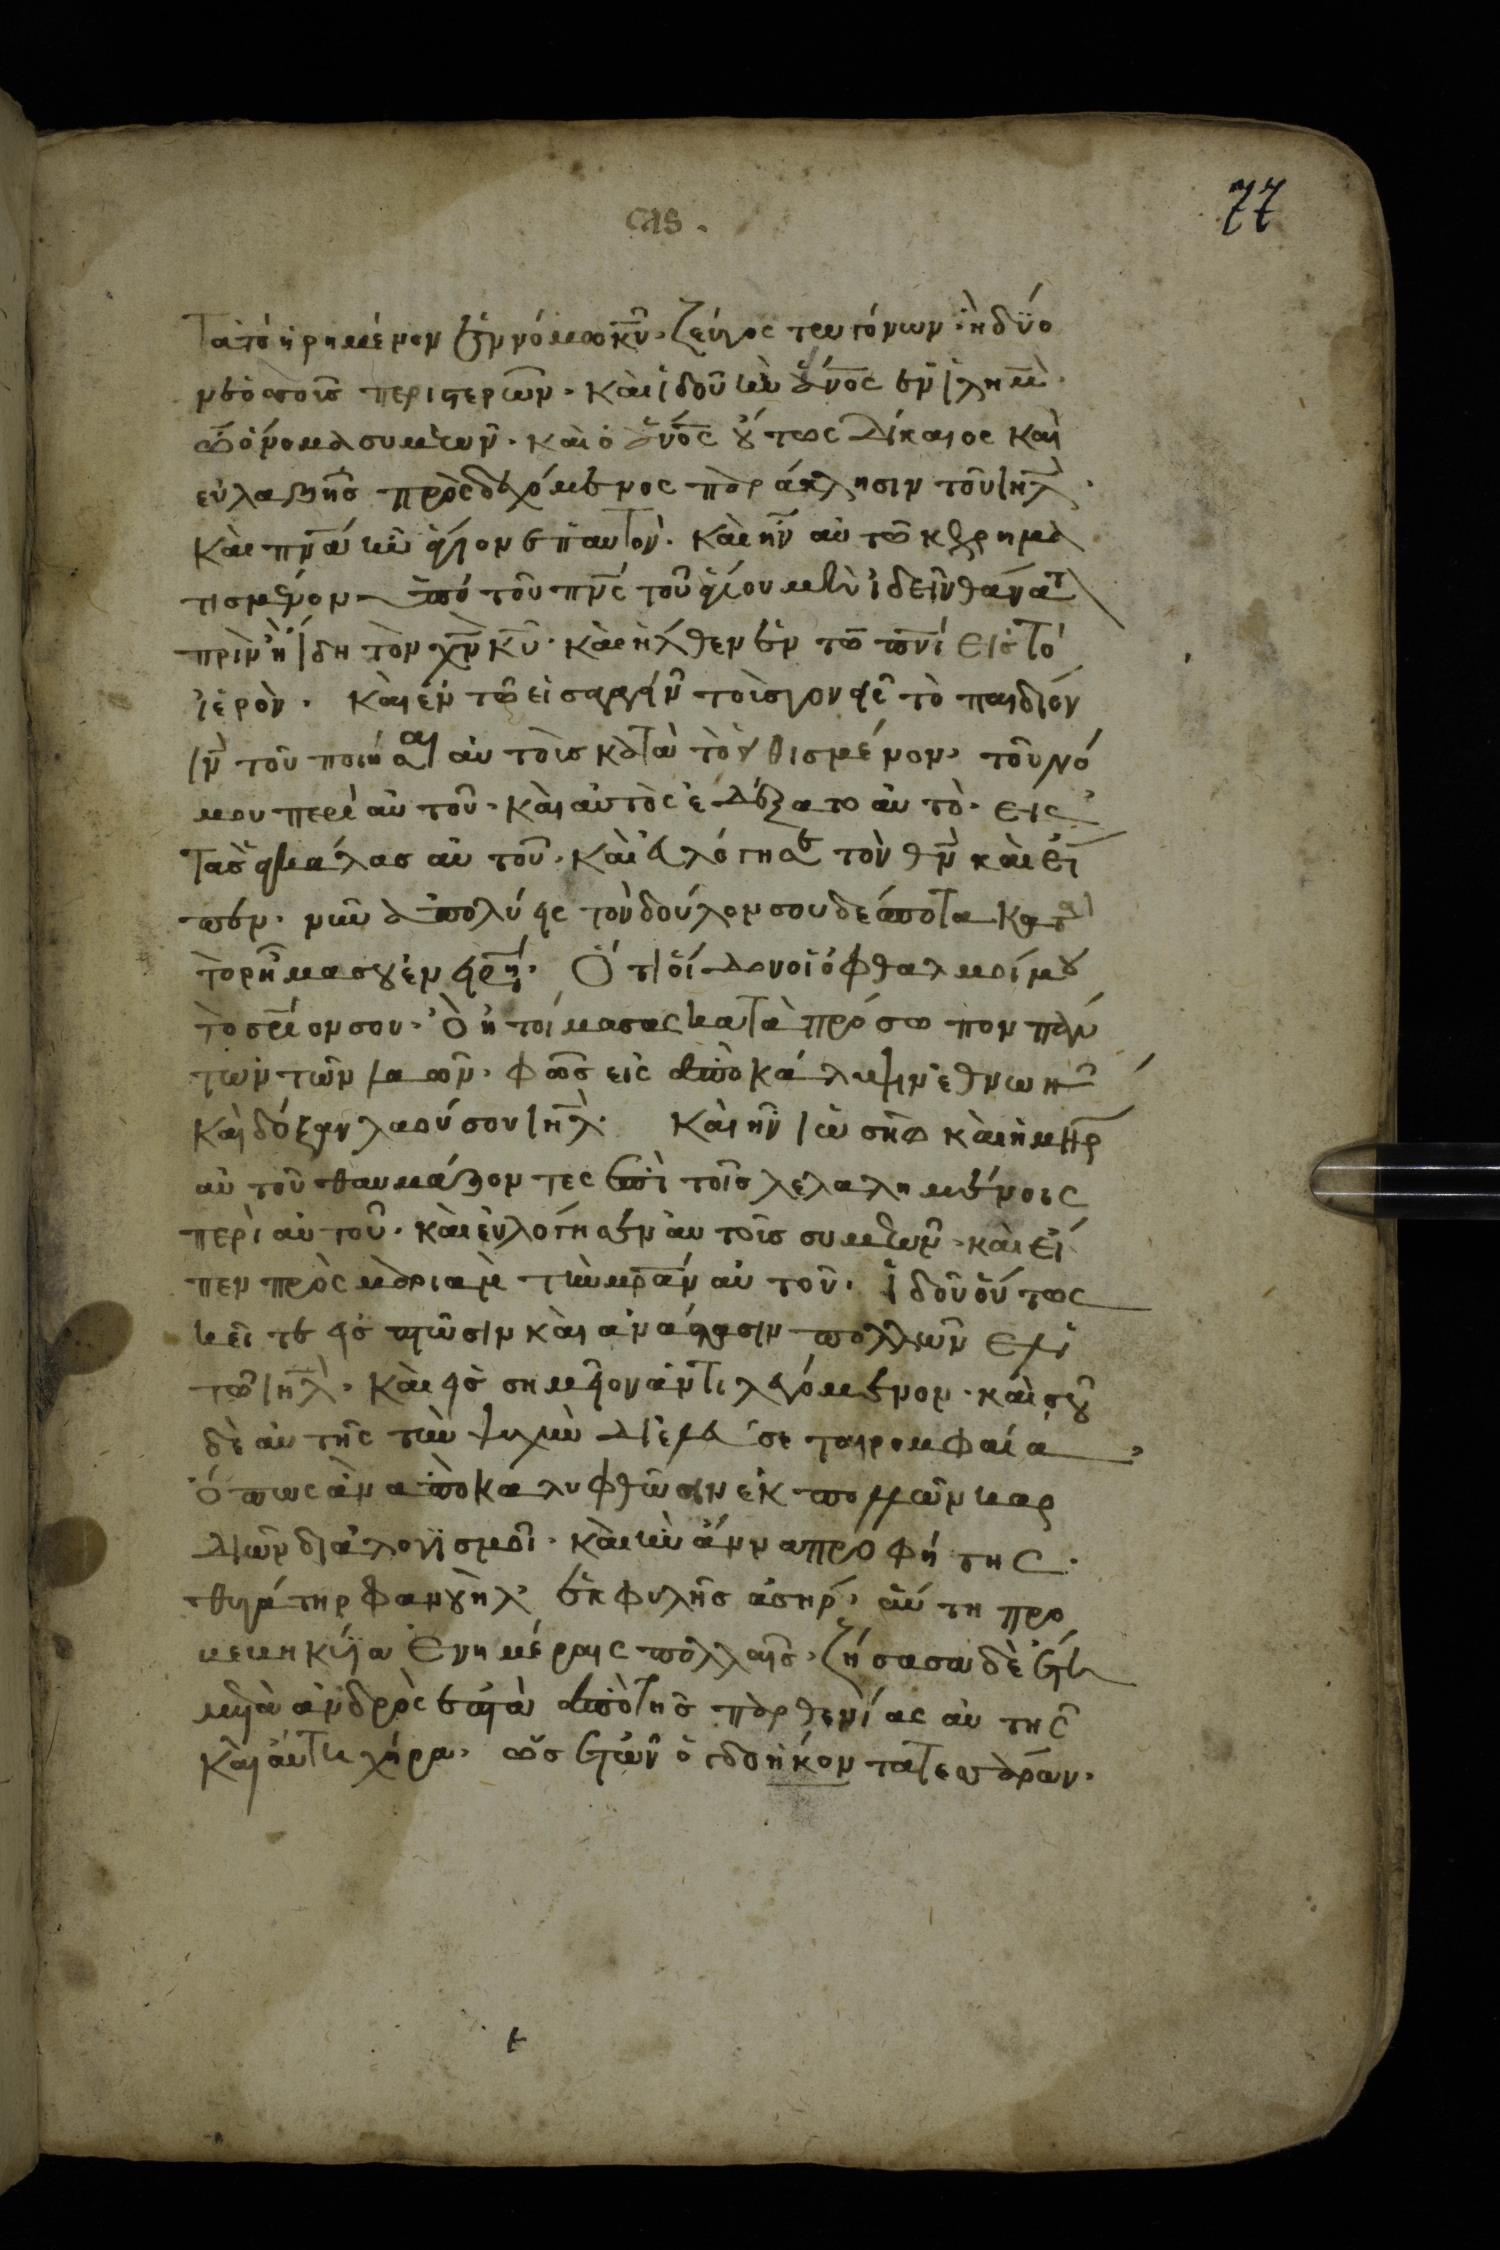 77
τὰ τὸ εἰρημένον ἐν νόμω κῦ. ζεῦγος τρυγόνων. ἢ δύο
νεοσσοῖς περιστερῶν. καὶ ἰδοῦ ἦν ἄνος ἐν ἰλημ.
ὧ ὄνομα συμεών. καὶ ὁ ἄνος οὗτως δίκαιος καὶ
εὐλαβὴς προσδεχόμενος παράκλησιν τοῦ ιηλ.
καὶ πνα ἦν ἅγιον ἐπαυτόν. καὶ ἦν αὐτῶ κεχρημα
τισμένον ὑπὸ τοῦ πνς τοῦ ἁγίου μὴ ἰδεῖν θάνατ
πρὶν ἢ ἴδη τὸν χν κῦ. καὶ ἦλθεν ἐν τῶ πνι εἰς τὸ
ἱερὸν. καὶ ἐν τῶ εἰσαγαγεῖν τοὶς γονεῖς τὸ παιδίον
ιν τοῦ ποιῆσαι αὐτοὶς κατὰ τὸ εἰθισμένον. τοῦ νό
μου περὶ αὐτοῦ. καὶ αὐτὸς ἐδέξατο αὐτὸ. εἰς
τὰς ἀγκάλας αὐτοῦ. καὶ εὐλόγησε τὸν θν καὶ εἶ
πεν. νῦν ἀπολύεις τὸν δοῦλον σου δέσποτα κατὰ
τὸ ρῆμα σου ἐν εἰρήν. Ὅτι εἶδον οἱ ὀφθαλμοί μου
τὸ σριον σου. Ὃ ἡτοίμασας κατὰ πρόσωπον πάν
των τῶν λαῶν. φῶς εἰς ἀποκάλυψιν ἐθνῶν
καὶ δόξαν λαοῦ σου ιηλ. Καὶ ἦν ἰωσὴφ καὶ ἡ μηρ
αὐτοῦ θαυμάζοντες ἐπὶ τοῖς λελαλημένοις
περὶ αὐτοῦ. καὶ εὐλόγησεν αὐτοῖς συμεών. καὶ εἶ
πεν πρὸς μαριαμ τὴν μραν αὐτοῦ. ἰδοῦ οὗτως
κεῖται εἰς πτῶσιν καὶ ἀνάστασιν πολλῶν ἐν
τῶ ιηλ. καὶ εἰς σημεῖον ἀντιλεγόμενον. καὶ σοῦ
δὲ αὐτῆς τὴν ψυχὴν διελεύσεται ρομφαία
ὅπως ἂν ἀποκαλυφθῶσιν ἐκ πολλῶν καρ
διῶν διαλογισμοῖ. καὶ ἦν ἄννα προφῆτης.
θυγάτηρ φανουὴλ ἐκ φυλῆς ἀσηρ. αὕτη προ
βεβηκυῖα ἐν ἡμέραις πολλαῖς. ζήσασα δὲ ἔτη
μετὰ ἀνδρὸς ἑπτὰ ἀπὸ τῆς παρθενίας αὐτῆς
καὶ αὕτη χήρα. ὡς ἐτῶν ὀγδοήκοντα τεσσάρων.